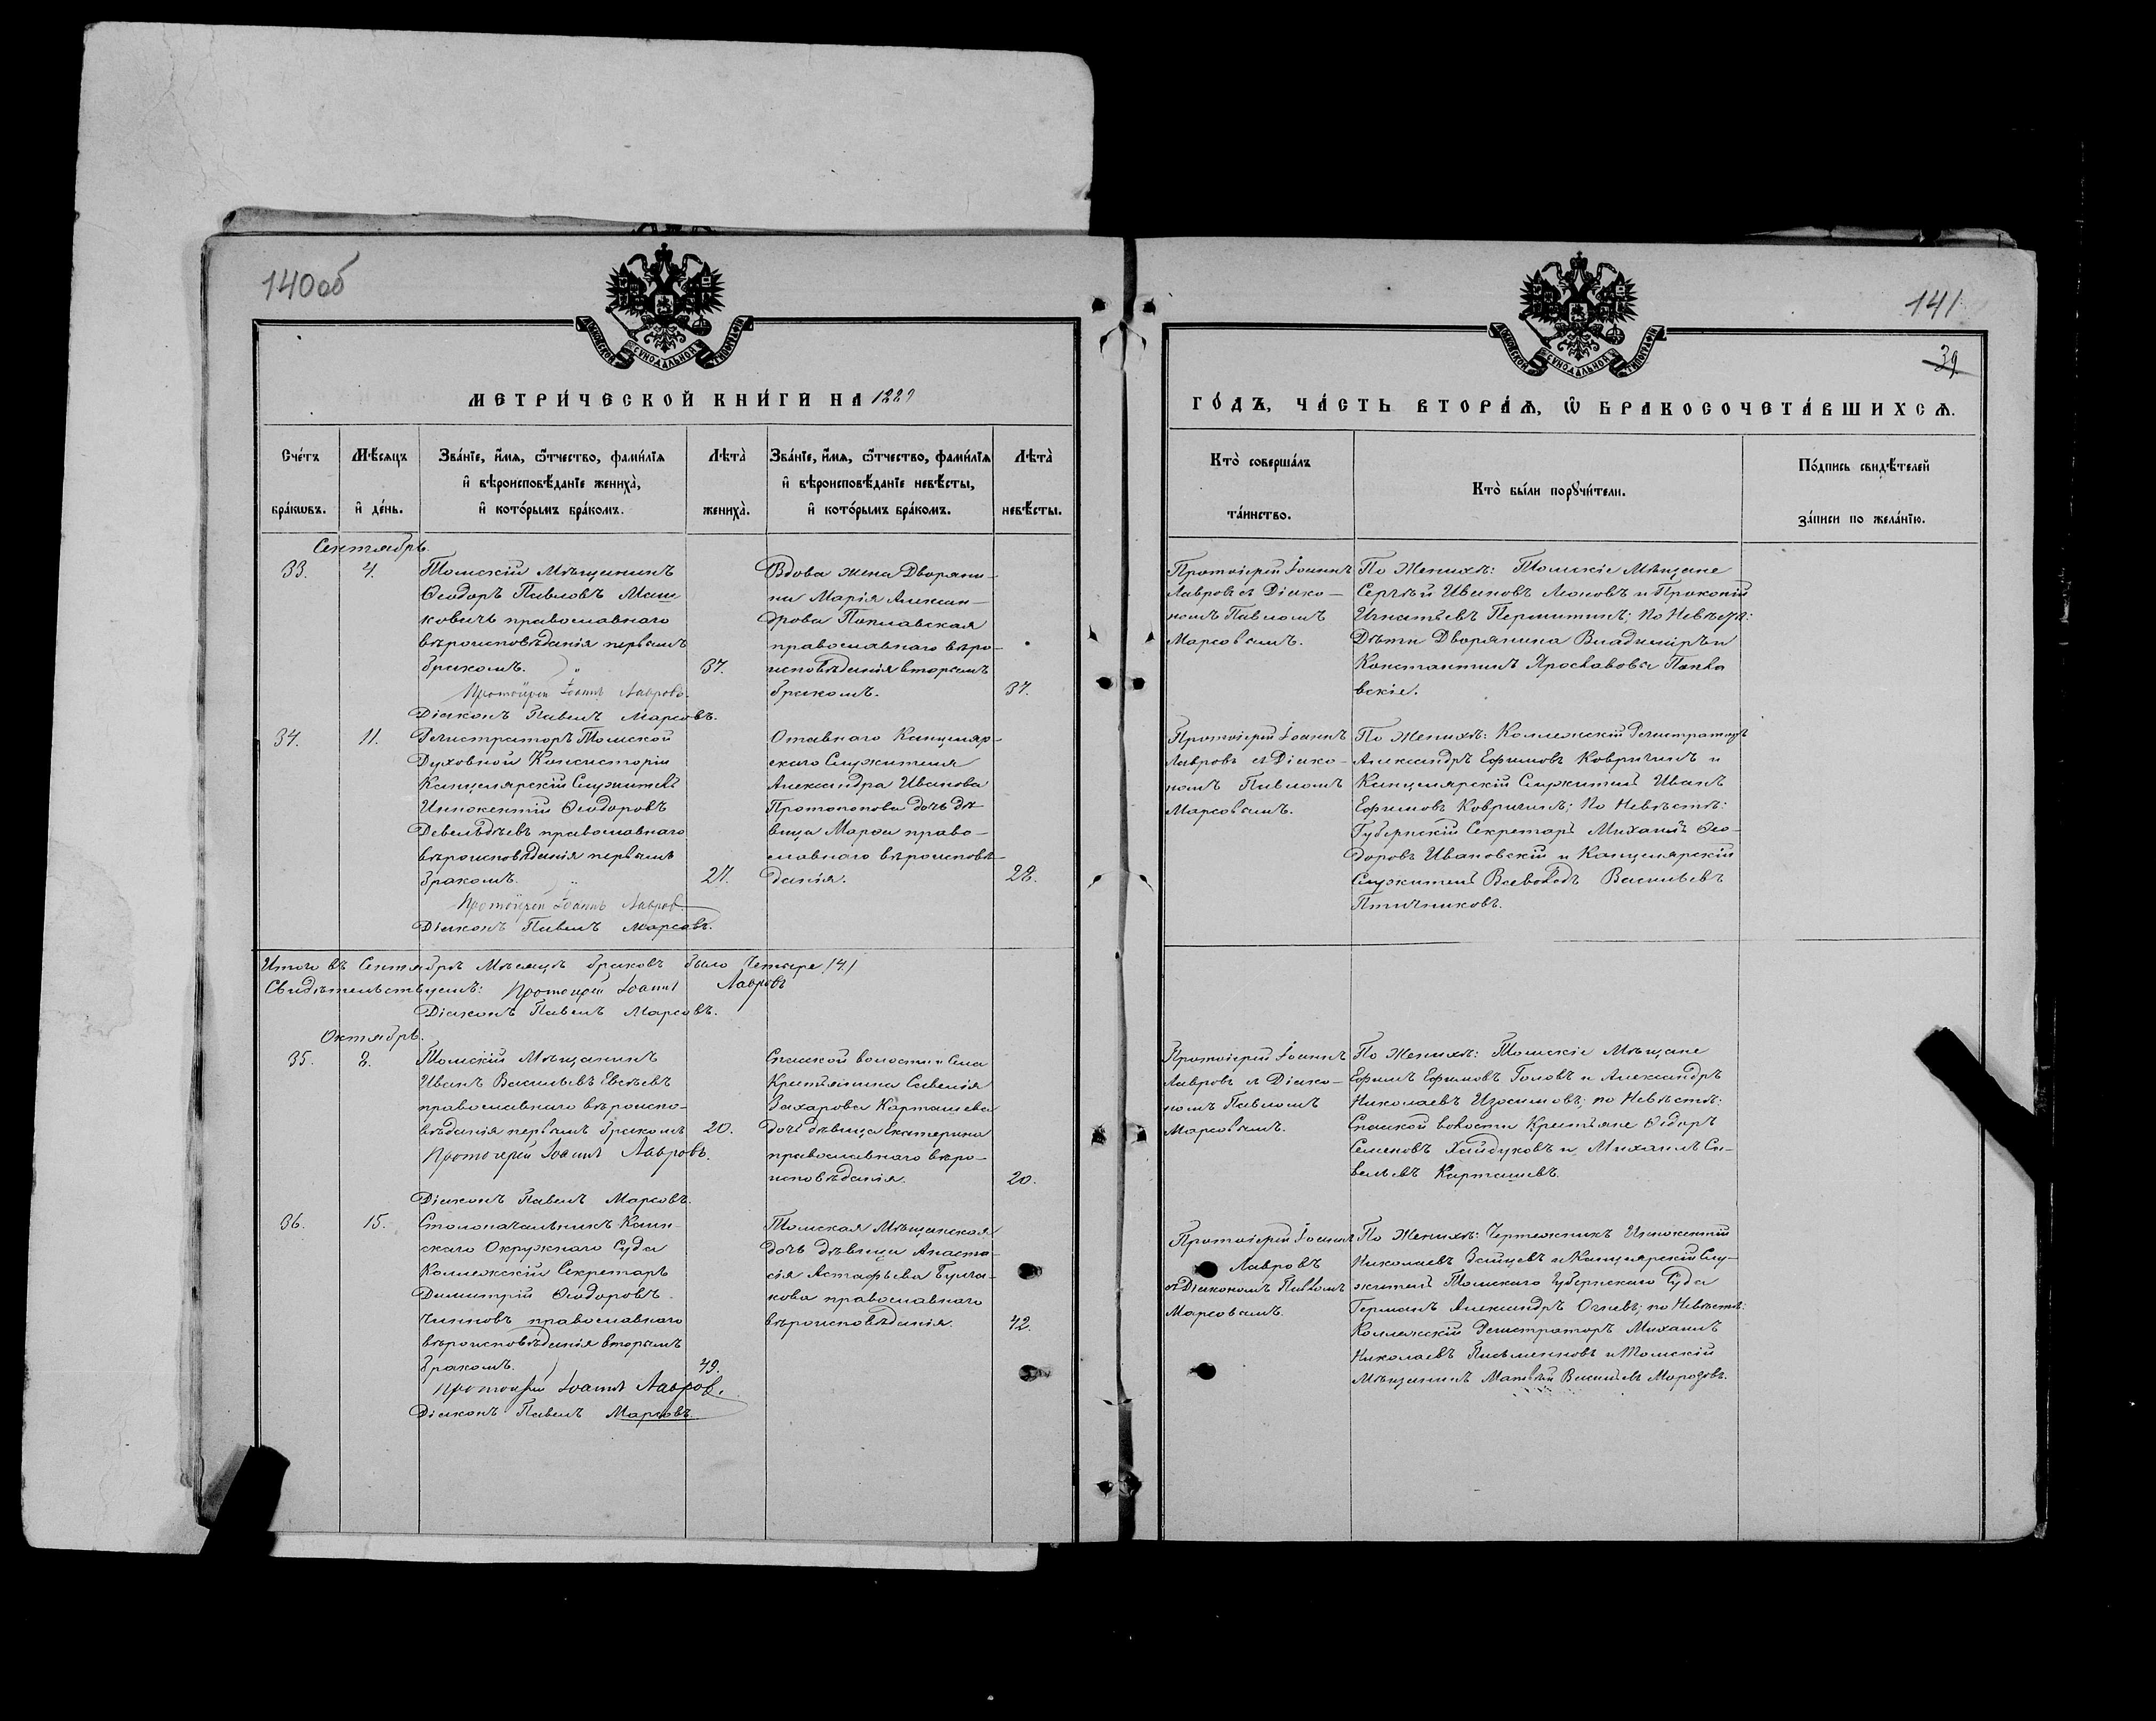 140об
МОСКОВСКОЙ СѴНОДАЛЬНОЙ ТИПОГРАФІИ
МЕТРИ́ЧЕСКОЙ КНИ́ГИ НА 1889
Сче́тъ бра́кѡвъ.
Мѣ́сяцъ и҆ де́нь.
Зва́нїе, и҆́мя, ѻ҆́тчество, фами́лїя
и҆ вѣроисповѣ́данїе жениха̀,
и҆ кото́рымъ бра́комъ.
Лѣта̀ жениха̀.
Зва́нїе, и҆́мя, ѻ҆́тчество, фами́лїя
и҆ вѣроисповѣ́данїе невѣ́сты,
и҆ кото́рымъ бра́комъ.
Лѣта̀ невѣ́сты.
Сентябрь.
33.
4.
Томскій Мѣщанинъ
Ѳеодоръ Павловъ Маш
ковичъ православнаго
вѣроисповѣданія первымъ
бракомъ.
37.
Протоіерей Іоаннъ Лавровъ.
Діаконъ Павелъ Марсовъ.
Вдова жена Дворяни-
на Марія Алексан-
дрова Поплавская
православнаго вѣро-
исповѣданія вторымъ
бракомъ.
37.
34.
11.
Регистраторъ Томской
Духовной Консисторіи
Канцелярскій Служитель
Иннокентій Ѳеодоровъ
Девельдѣевъ православнаго
вѣроисповѣданія первымъ
бракомъ.
21.
Протоіерей Іоаннъ Лавров.
Діаконъ Павелъ Марсовъ.
Отавнаго Канцеляр-
скаго Служителя
Александра Иванова
Протопопова дочь дѣ-
вица Марѳа право-
славнаго вѣроисповѣ-
данія.
28.
Итого въ Сентябрѣ Мѣсяцѣ браковъ было Четыре /4/
Свидѣтельствуемъ: Протоіерей Іоаннъ Лавровъ
Діаконъ Павелъ Марсовъ.
Октябрь.
35.
8.
Томскій Мѣщанинъ
Иванъ Васильевъ Евсѣевъ
православнаго вѣроиспо-
вѣданія первымъ бракомъ
20.
Протоіерей Іоаннъ Лавровъ.
Діаконъ Павелъ Марсовъ.
Спасской волости и Села
Крестьянина Савелія
Захарова Карташева
дочь дѣвица Екатерина
православнаго вѣро-
исповѣданія.
20.
36.
15.
Столоначальникъ Каин-
скаго Окружнаго Суда
Коллежскій Секретарь
Димитрій Ѳеодоровъ
Чинновъ православнаго
вѣроисповѣданія вторымъ
бракомъ.
49.
Протоіерей Іоаннъ Лавров.
Діаконъ Павелъ Марсовъ.
Томская Мѣщанская
дочь дѣвица Анаста-
сія Астафьева Булга-
кова православнаго
вѣроисповѣданія.
42.
141
39
МОСКОВСКОЙ СѴНОДАЛЬНОЙ ТИПОГРАФІИ
ГО́ДЪ, ЧА́СТЬ ВТОРА́Я, Ѡ҆ БРАКОСОЧЕТА́ВШИХСЯ.
Кто̀ соверша́лъ та́инство.
Кто̀ бы́ли порꙋчи́тели.
По́дпись свидѣ́телей за́писи по жела́нїю.
Протоіерей Іоаннъ
Лавровъ съ Діако-
номъ Павломъ
Марсовымъ.
По Женихѣ: Томскіе Мѣщане
Сергѣй Ивановъ Леоновъ и Прокопій
Игнатьевъ Першитинъ; По Невѣстѣ:
Дѣти Дворянина Владиміръ и
Константинъ Ярославовы
вскіе.
Протоіерей Іоаннъ
Лавровъ съ Діако-
номъ Павломъ
Марсовымъ.
По Женихѣ: Коллежскій Регистраторъ
Александръ Ефимовъ Ковригинъ и
Канцелярскій Служитель Иванъ
Ефимовъ Ковригинъ; По Невѣстѣ:
Губернскій Секретарь Михаилъ Ѳео-
доровъ Ивановскій и Канцелярскій
Служитель Всеволодъ Васильевъ
Птичниковъ.
Протоіерей Іоаннъ
Лавровъ съ Діако-
номъ Павломъ
Марсовымъ.
По Женихѣ: Томскіе Мѣщане
Ефимъ Ефимовъ Головъ и Александръ
Николаевъ Изосимовъ; по Невѣстѣ:
Спасской волости Крестьяне Ѳедоръ
Семеновъ Хайдуковъ и Михаилъ Са-
вельевъ Карташевъ.
Протоіерей Іоаннъ
Лавровъ
съ Діакономъ Павломъ
Марсовымъ.
По Женихѣ: Чертежникъ Иннокентій
Николаевъ Зайцевъ и Канцелярскій Слу-
житель Томскаго Губернскаго Суда
Германъ Александръ Огневъ; по Невѣстѣ:
Коллежскій Регистраторъ Михаилъ
Николаевъ Письменновъ и Томскій
Мѣщанинъ Матвѣй Васильевъ Морозовъ.